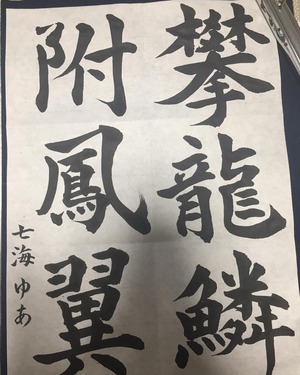 攀龍鱗
附鳳翼
七海ゆあ